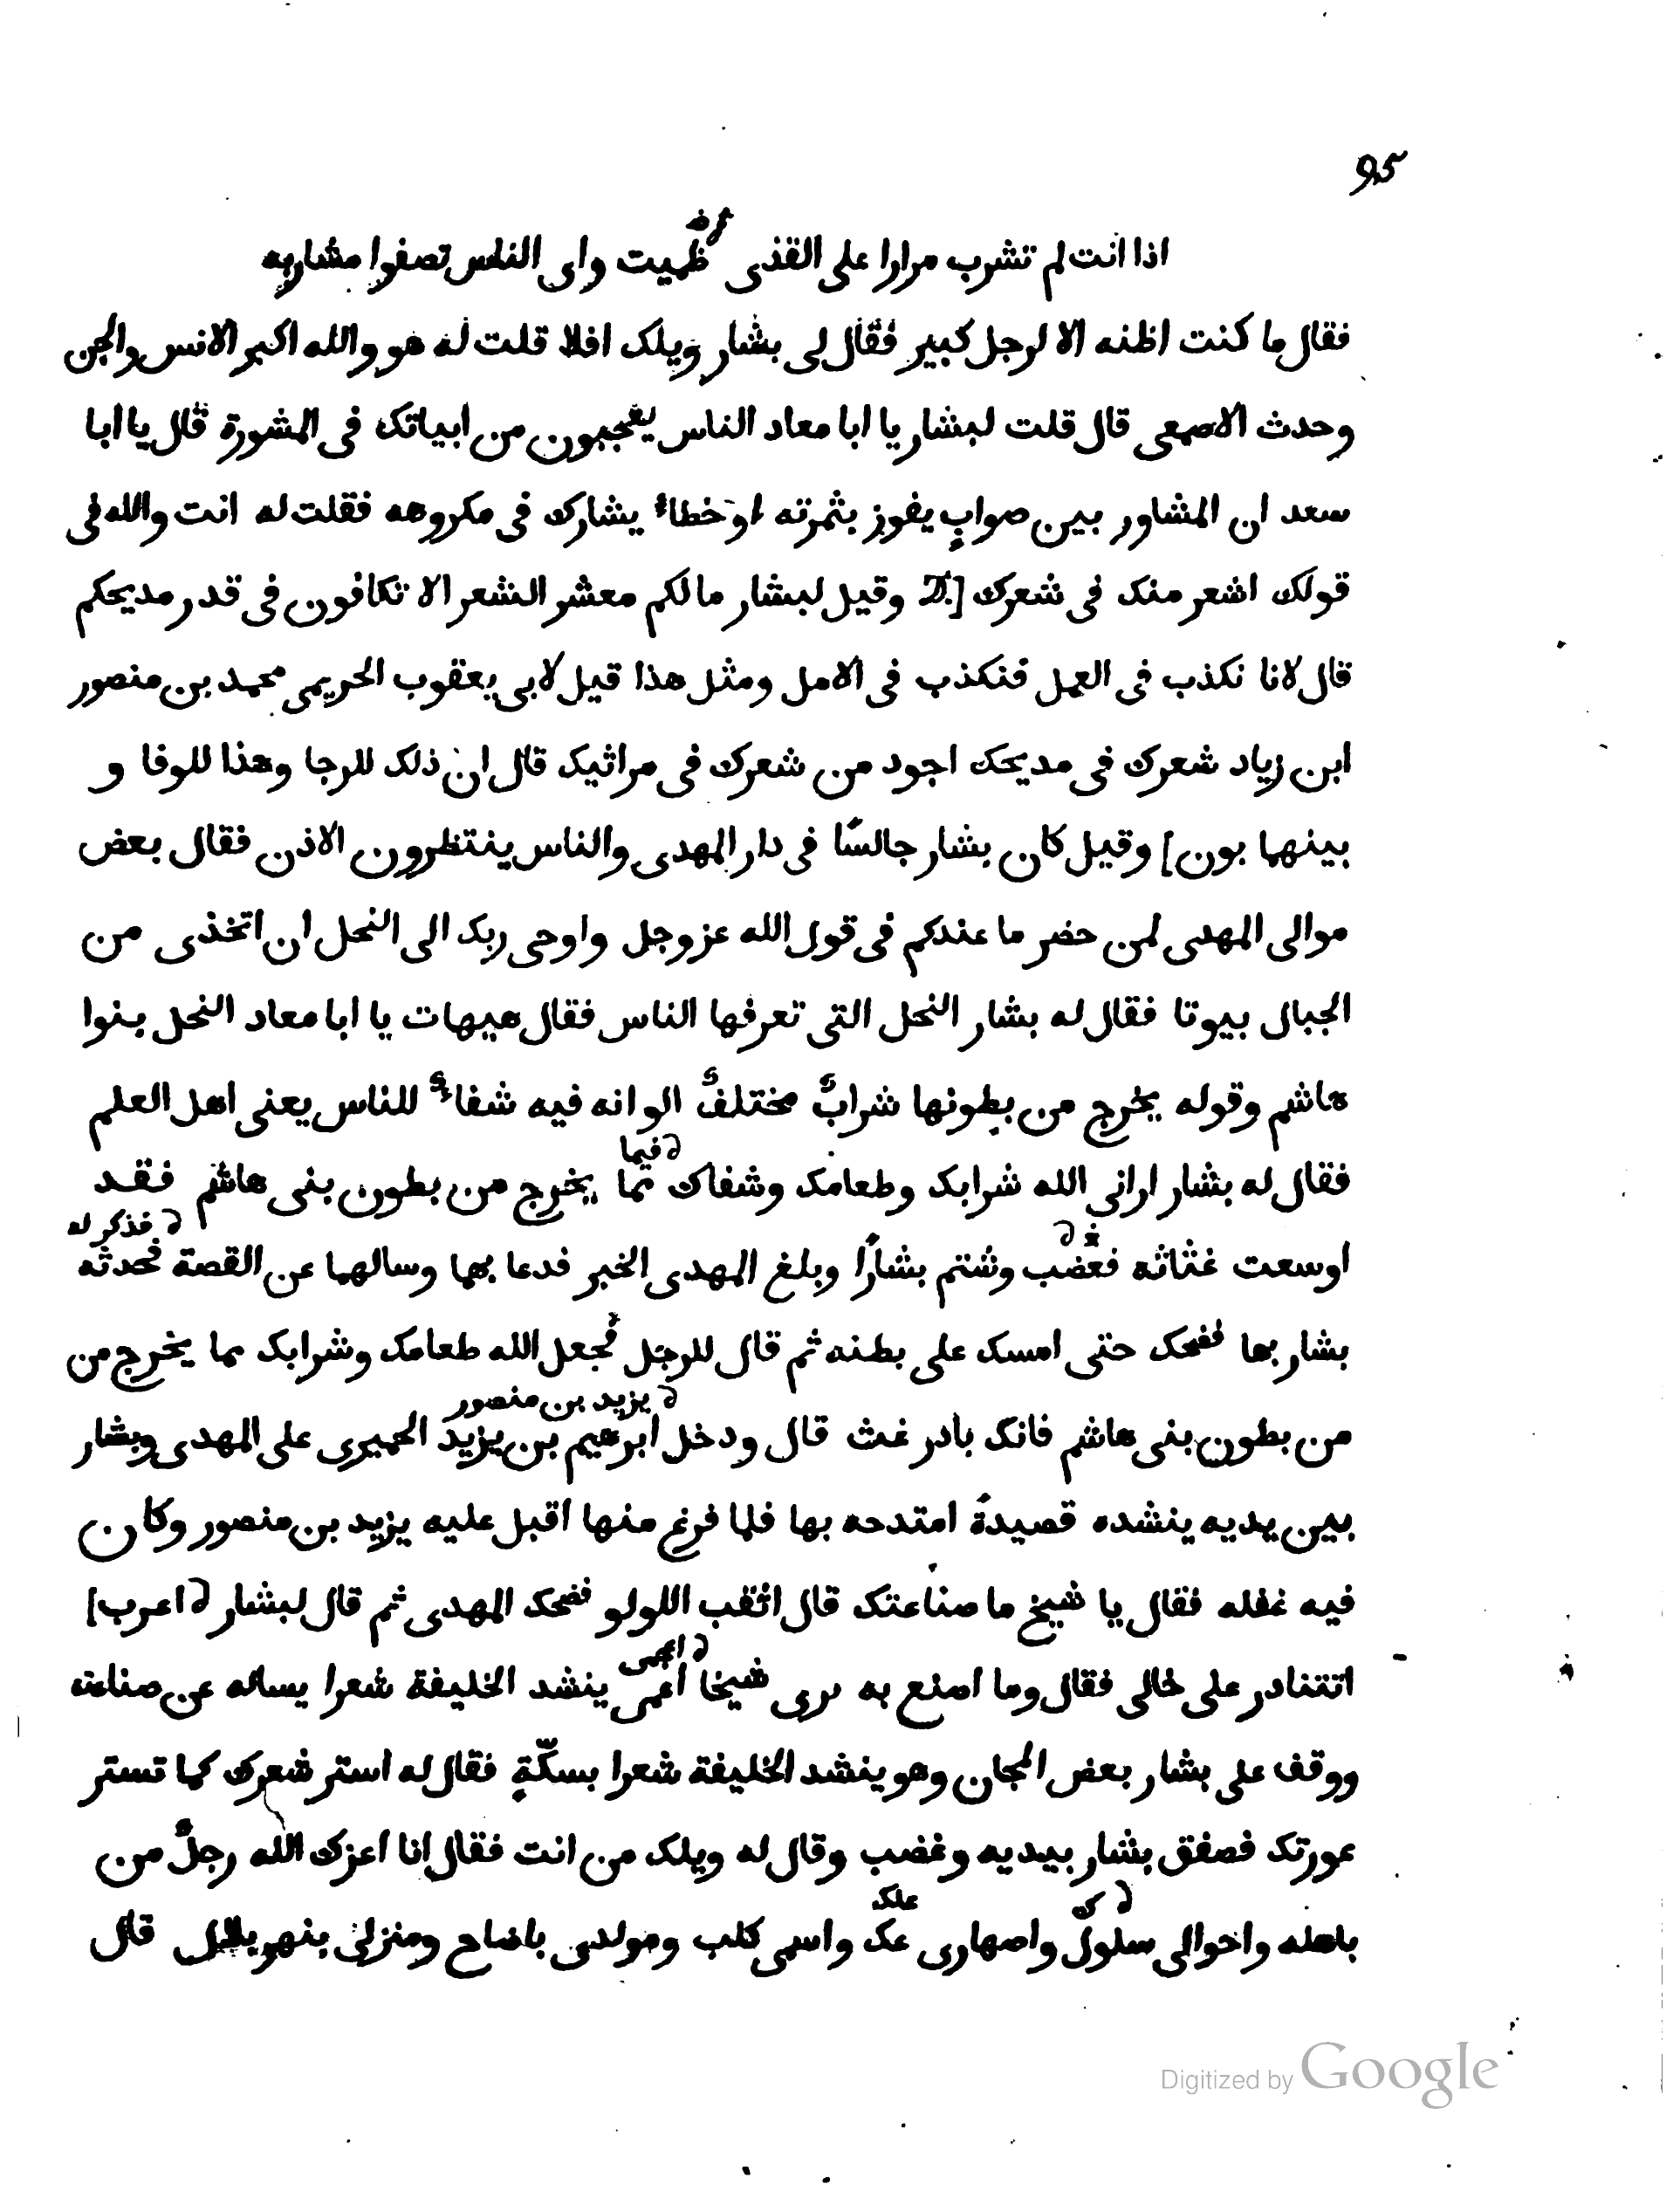 95
اذا انت لم تشرب مرارا على القذى ظميت واى الناس تصفوا مشاربه
فقال ما كنت اظنه الا لرجل كبير فقال لى بشار ويلك افلا قلت له هو والله اكبر الانس والجن
وحدث الاصمعى قال قلت لبشار يا ابا معاد الناس يعجبون من ابياتك فى المشورة قال يا ابا
سعد ان المشاور بين صوابٍ يفوز بثمرته او خطاء يشارك فى مكروهه فقلت له انت والله فى
قولك اشعر منك فى شعرك [ وقيل لبشار ما لكم معشر الشعر الا تكافون فى قدر مديحكم
قال لانا نكذب فى العمل فنكذب فى الامل ومثل هذا قيل لابى يعقوب الحريمى محمد بن منصور
ابن زياد شعرك فى مديحك اجود من شعرك فى مراثيك قال ان ذلك للرجا وهذا للوفا و
بينهما بون] وقيل كان بشار جالسًا فى دار المهدى والناس ينتظرون الاذن فقال بعض
موالى المهدى لمن حضر ما عندكم فى قول الله عز وجل واوحى ربك الى النحل ان اتخذى من
الجبال بيوتا فقال له بشار النحل التى تعرفها الناس فقال هيهات يا ابا معاد النحل بنوا
هاشم وقوله يخرج من بطونها شرابٌ مختلفٌ الوانه فيه شفاءٌ للناس يعنى اهل العلم
فيما
فقال له بشار ارانى الله شرابك وطعامك وشفاك مما يخرج من بطون بنى هاشم فقد
فذكر له
اوسعت غثاثه فغضب وشتم بشارًا وبلغ المهدى الخبر فدعا بهما وسالهما عن القصة فحدثه
بشار بها فضحك حتى امسك على بطنه ثم قال للرجل فجعل الله طعامك وشرابك مما يخرج من
يزيد بن منصور
من بطون بنى هاشم فانك بادر غث قال ودخل ابرهيم بن يزيد الحميرى على المهدى وبشار
بين يديه ينشده قصيدةً امتدحه بها فلما فرغ منها اقبل عليه يزيد بن منصور وكان
فيه غفله فقال يا شيخ ما صناعتك قال اثقب اللولو فضحك المهدى ثم قال لبشار اعرب]
اعمى
اتتنادر على خالى فقال وما اصنع به يرى شيخا اعمى ينشد الخليفة شعرا يساله عن صناعته
ووقف على بشار بعض المجان وهو ينشد الخليفة شعرا بسكّةٍ فقال له استر شعرك كما تستر
عورتك فصفق بشار بيديه وغضب وقال له ويلك من انت فقال انا اعزك الله رجلٌ من
باهله واخوالى سلول واصهارى عك واسمى كلب ومولدى باضاح ومنزلى بنهر بلال قال
Digitized by Google